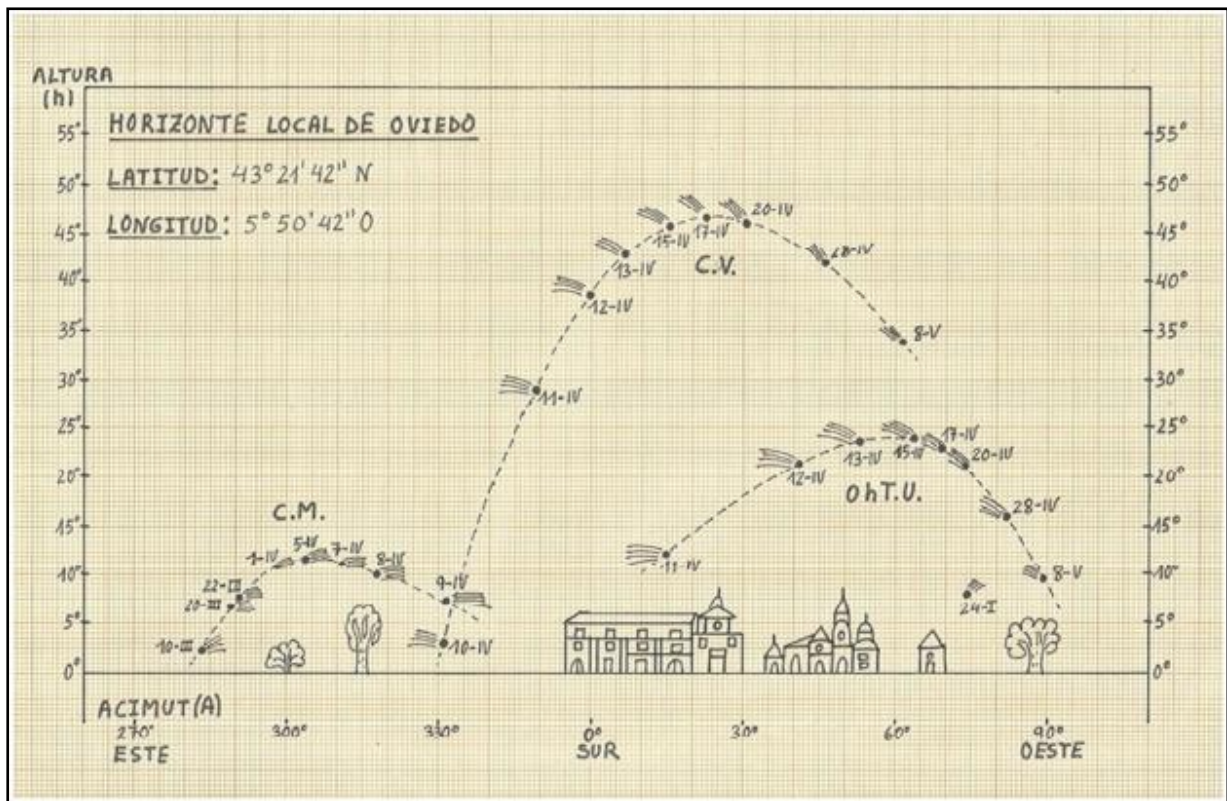 ALTURA
(h)
HORIZONTE LOCAL DE OVIEDO
LATITUD: 43° 21' 42" N
LONGITUD: 5° 50' 42" O
55°
50°
45°
40°
35°
30°
25°
20°
15°
10°
5°
0°
55°
50°
45°
40°
35°
30°
25°
20°
15°
10°
5°
0°
C.M.
10-III
20-III
22-III
1-IV
5-IV
7-IV
8-IV
9-IV
C.V.
10-IV
11-IV
12-IV
13-IV
15-IV
17-IV
20-IV
28-IV
8-V
0hT.U.
11-IV
12-IV
13-IV
15-IV
17-IV
20-IV
28-IV
8-V
24-I
ACIMUT(A)
270° 300° 330° 0° 30° 60° 90°
ESTE SUR OESTE